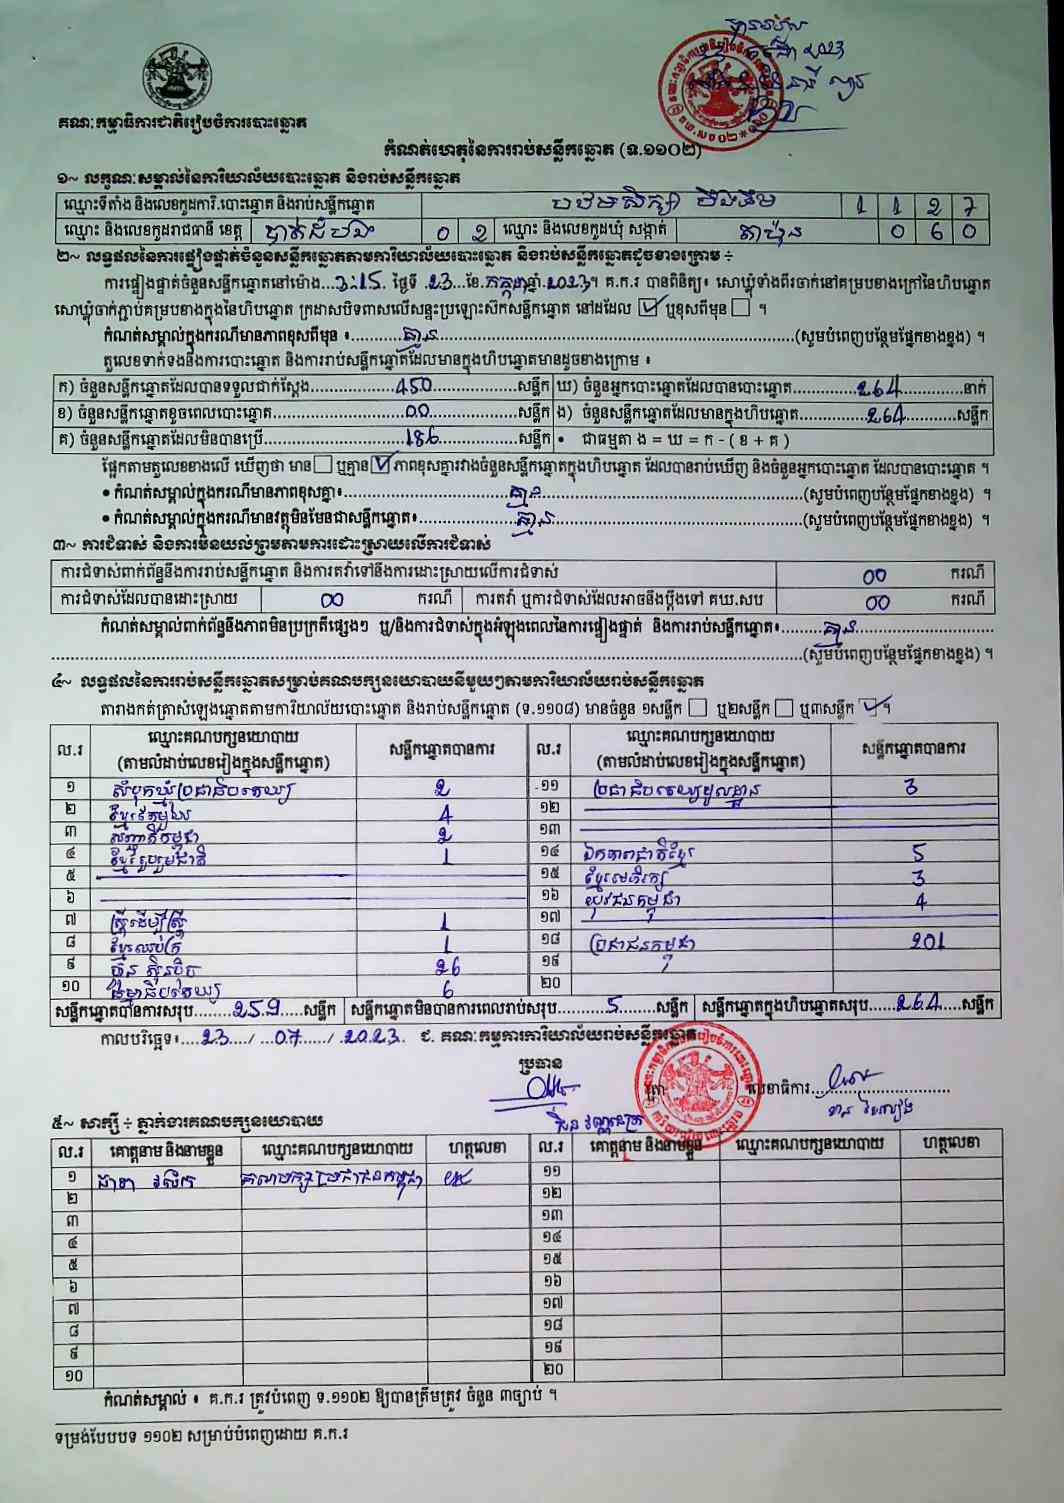 គណៈកម្មាធិការជាតិរៀបចំការបោះឆ្នោត
កំណត់ហេតុនៃការរាប់សន្លឹកឆ្នោត (ទ.១១០២)
១~ លក្ខណៈសម្គាល់នៃការិយាល័យបោះឆ្នោត និងរាប់សន្លឹកឆ្នោត
ឈ្មោះទីតាំង និងលេខកូដការិ.បោះឆ្នោត និងរាប់សន្លឹកឆ្នោត បឋមសិក្សា 1 1 2 7
ឈ្មោះ និងលេខកូដរាជធានី ខេត្ត បាត់ដំបង 0 2 ឈ្មោះ និងលេខកូដឃុំ សង្កាត់ តាប៉ុន 0 6 0
២~ លទ្ធផលនៃការផ្ទៀងផ្ទាត់ចំនួនសន្លឹកឆ្នោតតាមការិយាល័យបោះឆ្នោត និងរាប់សន្លឹកឆ្នោតដូចខាងក្រោម ÷
ការផ្ទៀងផ្ទាត់ចំនួនសន្លឹកឆ្នោតនៅម៉ោង...3:15. ថ្ងៃទី .23...ខែ.កក្កដាឆ្នាំ.2023។ គ.ក.រ បានពិនិត្យ៖ សោឃ្លុំទាំងពីរចាក់នៅគម្របខាងក្រៅនៃហិបឆ្នោត
សោឃ្លុំចាក់ភ្ជាប់គម្របខាងក្នុងនៃហិបឆ្នោត ក្រដាសបិទពាសលើសន្ទះប្រឡោះស៊កសន្លឹកឆ្នោត នៅដដែល ☑ ឬខុសពីមុន ☐ ។
កំណត់សម្គាល់ក្នុងករណីមានភាពខុសពីមុន ៖.........គ្មាន.........(សូមបំពេញបន្ថែមផ្នែកខាងក្រោយ) ។
តួលេខទាក់ទងនឹងការបោះឆ្នោត និងការរាប់សន្លឹកឆ្នោតដែលមានក្នុងហិបឆ្នោតមានដូចខាងក្រោម ៖
ក) ចំនួនសន្លឹកឆ្នោតដែលបានទទួលជាក់ស្តែង.........450.........សន្លឹក ឃ) ចំនួនអ្នកបោះឆ្នោតដែលបានបោះឆ្នោត.........264.........នាក់
ខ) ចំនួនសន្លឹកឆ្នោតខូចពេលបោះឆ្នោត.........00.........សន្លឹក ង) ចំនួនសន្លឹកឆ្នោតដែលមានក្នុងហិបឆ្នោត.........264.........សន្លឹក
គ) ចំនួនសន្លឹកឆ្នោតដែលមិនបានប្រើ.........186.........សន្លឹក • ជាធម្មតា ង = ឃ = ក - ( ខ + គ )
ផ្អែកតាមតួលេខខាងលើ ឃើញថា មាន ☐ ឬគ្មាន ☑ ភាពខុសគ្នារវាងចំនួនសន្លឹកឆ្នោតក្នុងហិបឆ្នោត ដែលបានរាប់ឃើញ និងចំនួនអ្នកបោះឆ្នោត ដែលបានបោះឆ្នោត ។
• កំណត់សម្គាល់ក្នុងករណីមានភាពខុសគ្នា៖.........គ្មាន.........(សូមបំពេញបន្ថែមផ្នែកខាងខ្នង) ។
• កំណត់សម្គាល់ក្នុងករណីមានវត្ថុមិនមែនជាសន្លឹកឆ្នោត៖.........គ្មាន.........(សូមបំពេញបន្ថែមផ្នែកខាងខ្នង) ។
៣~ ការជំទាស់ និងការមិនយល់ព្រមតាមការដោះស្រាយលើការជំទាស់
ការជំទាស់ពាក់ព័ន្ធនឹងការរាប់សន្លឹកឆ្នោត និងការតវ៉ាទៅនឹងការដោះស្រាយលើការជំទាស់ 00 ករណី
ការជំទាស់ដែលបានដោះស្រាយ 00 ករណី ការតវ៉ា ឬការជំទាស់ដែលអាចនឹងប្តឹងទៅ គឃ.សប 00 ករណី
កំណត់សម្គាល់ពាក់ព័ន្ធនឹងភាពមិនប្រក្រតីផ្សេងៗ ឬ/និងការជំទាស់ក្នុងអំឡុងពេលនៃការផ្ទៀងផ្ទាត់ និងការរាប់សន្លឹកឆ្នោត៖.........គ្មាន.........
.........(សូមបំពេញបន្ថែមផ្នែកខាងខ្នង) ។
៤~ លទ្ធផលនៃការរាប់សន្លឹកឆ្នោតសម្រាប់គណបក្សនយោបាយនីមួយៗតាមការិយាល័យរាប់សន្លឹកឆ្នោត
តារាងកត់ត្រាសំឡេងឆ្នោតតាមការិយាល័យបោះឆ្នោត និងរាប់សន្លឹកឆ្នោត (ទ.១១០៨) មានចំនួន ១សន្លឹក ☐ ឬ២សន្លឹក ☐ ឬ៣សន្លឹក ☑។
ល.រ ឈ្មោះគណបក្សនយោបាយ (តាមលំដាប់លេខរៀងក្នុងសន្លឹកឆ្នោត) សន្លឹកឆ្នោតបានការ ល.រ ឈ្មោះគណបក្សនយោបាយ (តាមលំដាប់លេខរៀងក្នុងសន្លឹកឆ្នោត) សន្លឹកឆ្នោតបានការ
១ សំបុកឃ្មុំប្រជាធិបតេយ្យ 2 ១១ ប្រជាធិបតេយ្យមូលដ្ឋាន 3
២ ខ្មែរតែមួយ 4 ១២
៣ សញ្ជាតិកម្ពុជា 2 ១៣
៤ ខ្មែររួបរួមជាតិ 1 ១៤ ឯកភាពជាតិខ្មែរ 5
៥ ១៥ ខ្មែរអភិរក្ស 3
៦ ១៦ យុវជនកម្ពុជា 4
៧ ស្ត្រីដើម្បីស្ត្រី 1 ១៧
៨ ខ្មែរឈប់ក្រ 1 ១៨ ប្រជាជនកម្ពុជា 201
៩ ហ្វ៊ុនស៊ិនប៉ិច 26 ១៩
១០ ធម្មាធិបតេយ្យ 6 ២០
សន្លឹកឆ្នោតបានការសរុប.........259.....សន្លឹក សន្លឹកឆ្នោតមិនបានការពេលរាប់សរុប.........5.........សន្លឹក សន្លឹកឆ្នោតក្នុងហិបឆ្នោតសរុប.....264....សន្លឹក
កាលបរិច្ឆេទ៖....23..../....07..../.2023.. ជ. គណៈកម្មការការិយាល័យរាប់សន្លឹកឆ្នោត
ប្រធាន
ត្រា លេខាធិការ.........
៥~ សាក្សី ÷ ភ្នាក់ងារគណបក្សនយោបាយ
ល.រ គោត្តនាម និងនាមខ្លួន ឈ្មោះគណបក្សនយោបាយ ហត្ថលេខា ល.រ គោត្តនាម និងនាមខ្លួន ឈ្មោះគណបក្សនយោបាយ ហត្ថលេខា
១ គណបក្សប្រជាជនកម្ពុជា ១១
២ ១២
៣ ១៣
៤ ១៤
៥ ១៥
៦ ១៦
៧ ១៧
៨ ១៨
៩ ១៩
១០ ២០
កំណត់សម្គាល់ ៖ គ.ក.រ ត្រូវបំពេញ ទ.១១០២ ឱ្យបានត្រឹមត្រូវ ចំនួន ៣ច្បាប់ ។
ទម្រង់បែបបទ ១១០២ សម្រាប់បំពេញដោយ គ.ក.រ